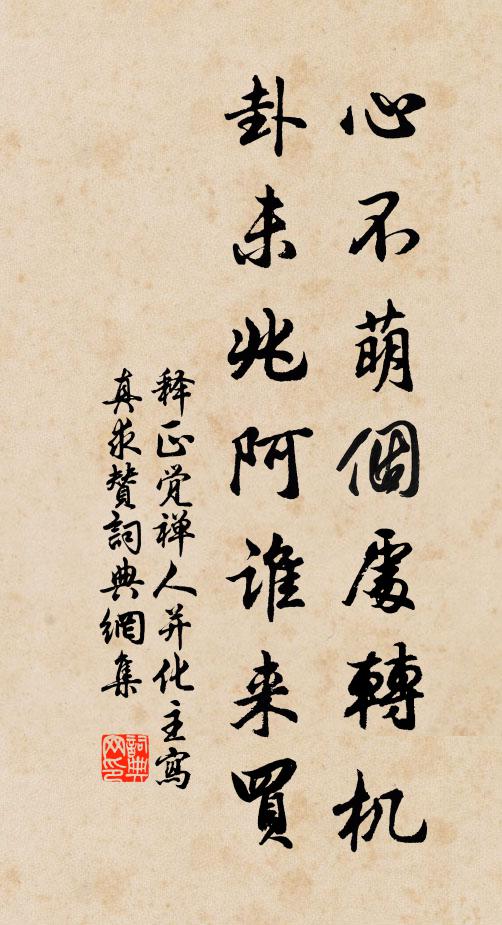 心不萌個處轉机
卦未兆阿谁来買
释正觉禅人并化主寫
真求赞詞典網集
詞典
网印